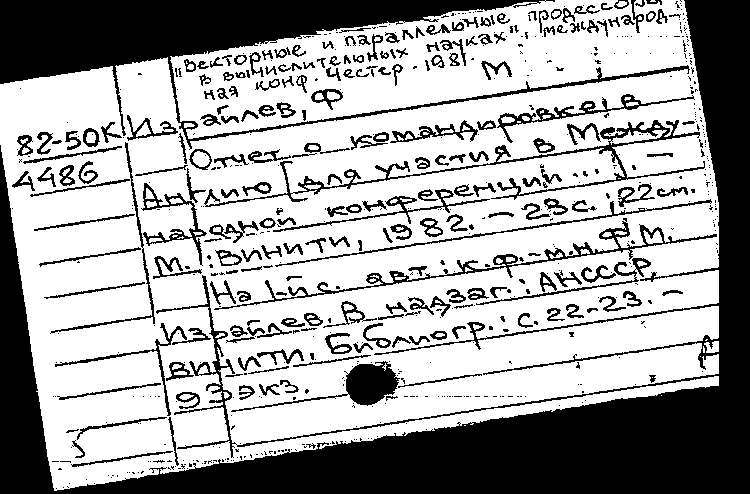 "Векторные и параллельные процессоры
в вычислительных науках", международ-
ная конф. Честер. 1981.
М
82-50К Израйлев, Ф
4486
Отчет о командировке в
Англию [для участия в Между-
народной конференции...]. —
М. : ВИНИТИ, 1982. — 23 с. ; 22 см.
На 1-й с. авт. : к.ф.-м.н. Ф.М.
Израйлев. В надзаг. : АН СССР,
ВИНИТИ. Библиогр. : с. 22-23. —
93 экз.